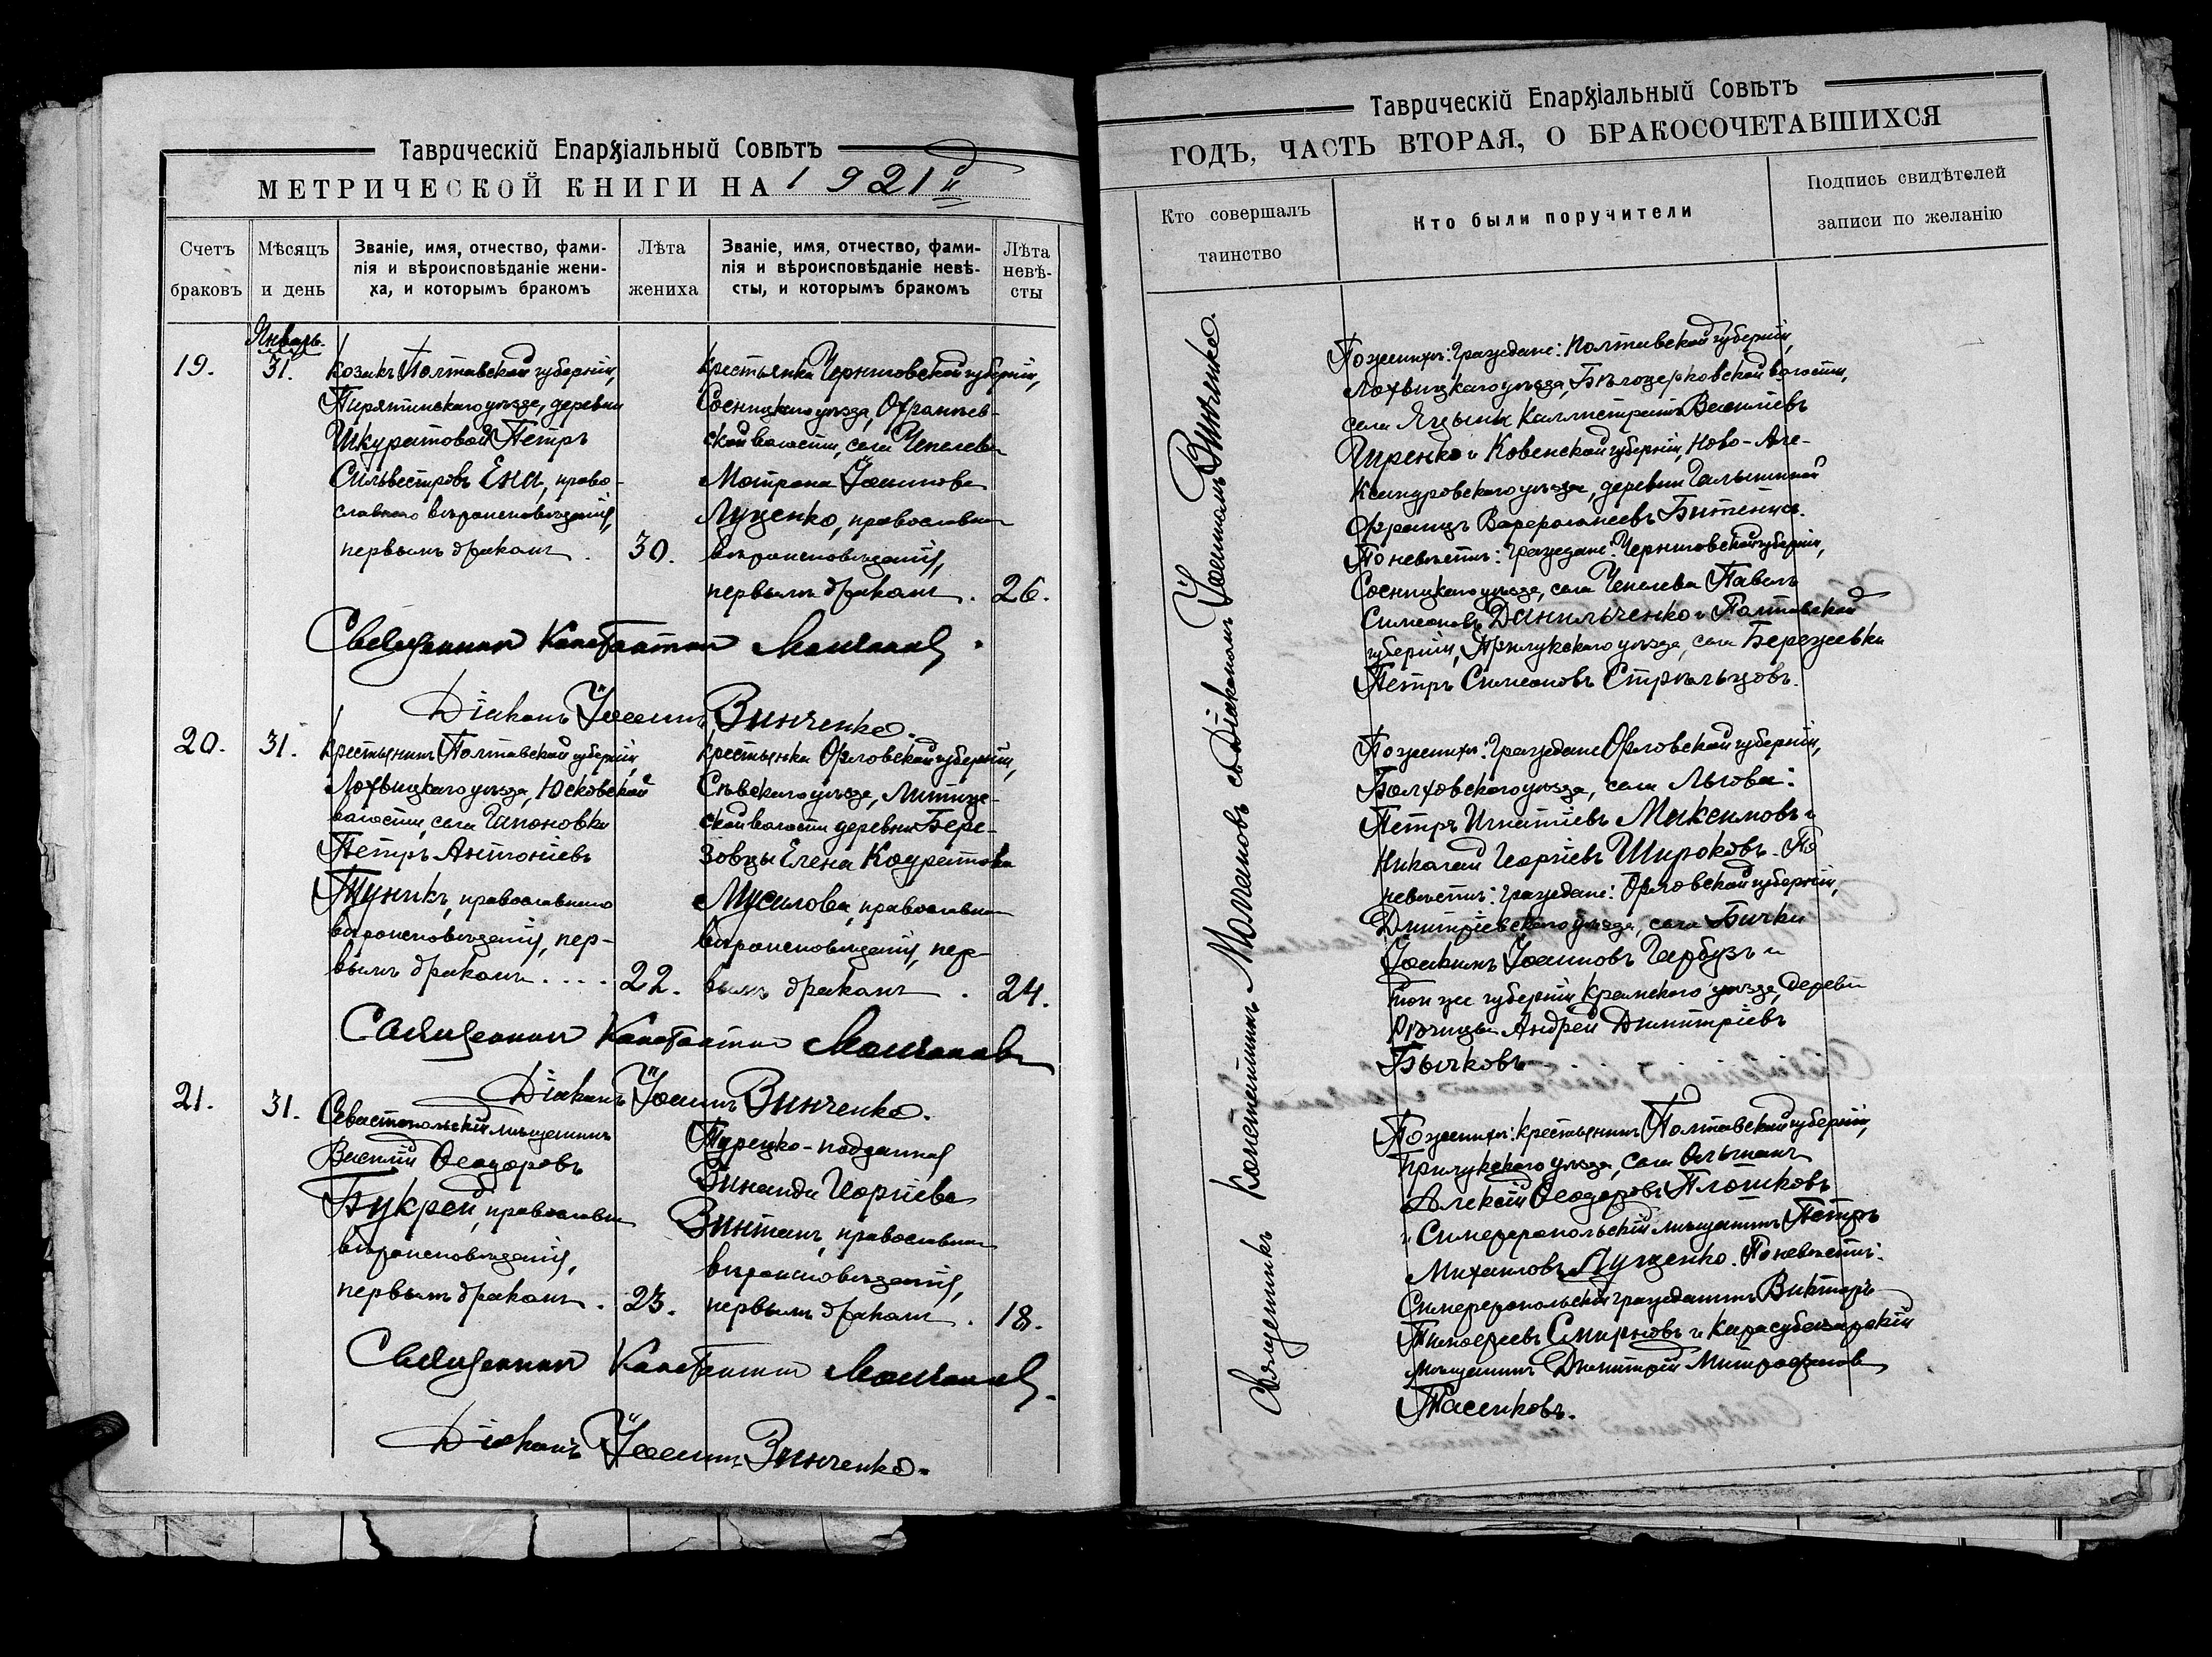 Таврическій Епархіальный Совѣтъ
МЕТРИЧЕСКОЙ КНИГИ НА 1921й
Счетъ браковъ
Мѣсяцъ и день
Званіе, имя, отчество, фами-
лія и вѣроисповѣданіе жени-
ха, и которымъ бракомъ
Лѣта жениха
Званіе, имя, отчество, фами-
лія и вѣроисповѣданіе невѣ-
сты, и которымъ бракомъ
Лѣта
невѣ-
сты
Январь
19.
31.
Козакъ Полтавской губерніи,
Пирятинскаго уѣзда, деревни
Шкуратовой Петръ
Сильвестровъ Ена, право-
славнаго вѣроисповѣданія,
первымъ бракомъ.
30.
Крестьянка Черниговской губерніи,
Сосницкаго уѣзда,
ской волости, села Чепелева
Матрона Іоаннова
Луценко, православнаго
вѣроисповѣданія,
первымъ бракомъ.
26.
Священникъ Константинъ Молчановъ.
Діаконъ Іоаннъ Винченко.
20.
31.
Крестьянинъ Полтавской губерніи,
Лохвицкаго уѣзда, Юсковской
волости, села Гапоновки
Петръ Антоніевъ
Туникъ, православнаго
вѣроисповѣданія, пер-
вымъ бракомъ....
22.
Крестьянка Орловской губерніи,
Сѣвскаго уѣзда,
ской волости деревни Бере-
зовцы Елена Кодратова
Мусилова, православнаго
вѣроисповѣданія, пер-
вымъ бракомъ.
24.
Священникъ Константинъ Молчановъ
Діаконъ Іоаннъ Винченко.
21.
31.
Севастопольскій мѣщанинъ
Василій Ѳеодоровъ
Букрей, православнаго
вѣроисповѣданія,
первымъ бракомъ.
23.
Турецко-подданная
Зинаида Георгіева
Винтанъ, православнаго
вѣроисповѣданія,
первымъ бракомъ.
18.
Священникъ Константинъ Молчановъ.
Діаконъ Іоаннъ Винченко.
Таврическій Епархіальный Совѣтъ
ГОДЪ, ЧАСТЬ ВТОРАЯ, О БРАКОСОЧЕТАВШИХСЯ
Кто совершалъ
таинство
Кто были поручители
Подпись свидѣтелей
записи по желанію
Священникъ Константинъ Молчановъ съ Діакономъ Іоанномъ Винченко.
По женихѣ: граждане: Полтавской губерніи,
Лохвицкаго уѣзда, Бѣлоцерковской волости,
села Яцыны Каллистратъ Васильевъ
Гиренко и Ковенской губерніи, Ново-Але-
ксандровскаго уѣзда, деревни
Францъ Варѳоломеевъ
По невѣстѣ: граждане: Черниговской губерніи,
Сосницкаго уѣзда, села Чепелева Павелъ
Симеоновъ Данильченко и Полтавской
губерніи, Прилукскаго уѣзда, села Березовки
Петръ Симеоновъ Стрѣльцовъ.
По женихѣ: граждане Орловской губерніи,
Болховскаго уѣзда, села Льгова:
Петръ Игнатіевъ Максимовъ и
Николай Георгіевъ Широковъ. По
невѣстѣ: граждане: Орловской губерніи,
Дмитріевскаго уѣзда, села Бички
Іоакимъ Іоанновъ Гарбузъ и
той же губерніи Кромскаго уѣзда, деревни
Рѣчицы Андрей Димитріевъ
Бычковъ.
По женихѣ: крестьянинъ Полтавской губерніи,
Прилукскаго уѣзда, села Ольшанъ
Алексій Ѳеодоровъ Плотиковъ
и Симферопольскій мѣщанинъ Петръ
Михаиловъ Луценко. По невѣстѣ:
Симферопольскій гражданинъ Викторъ
Тимоѳеевъ Смирновъ и Карасубазарскій
мѣщанинъ Димитрій Митрофановъ
Тасенковъ.